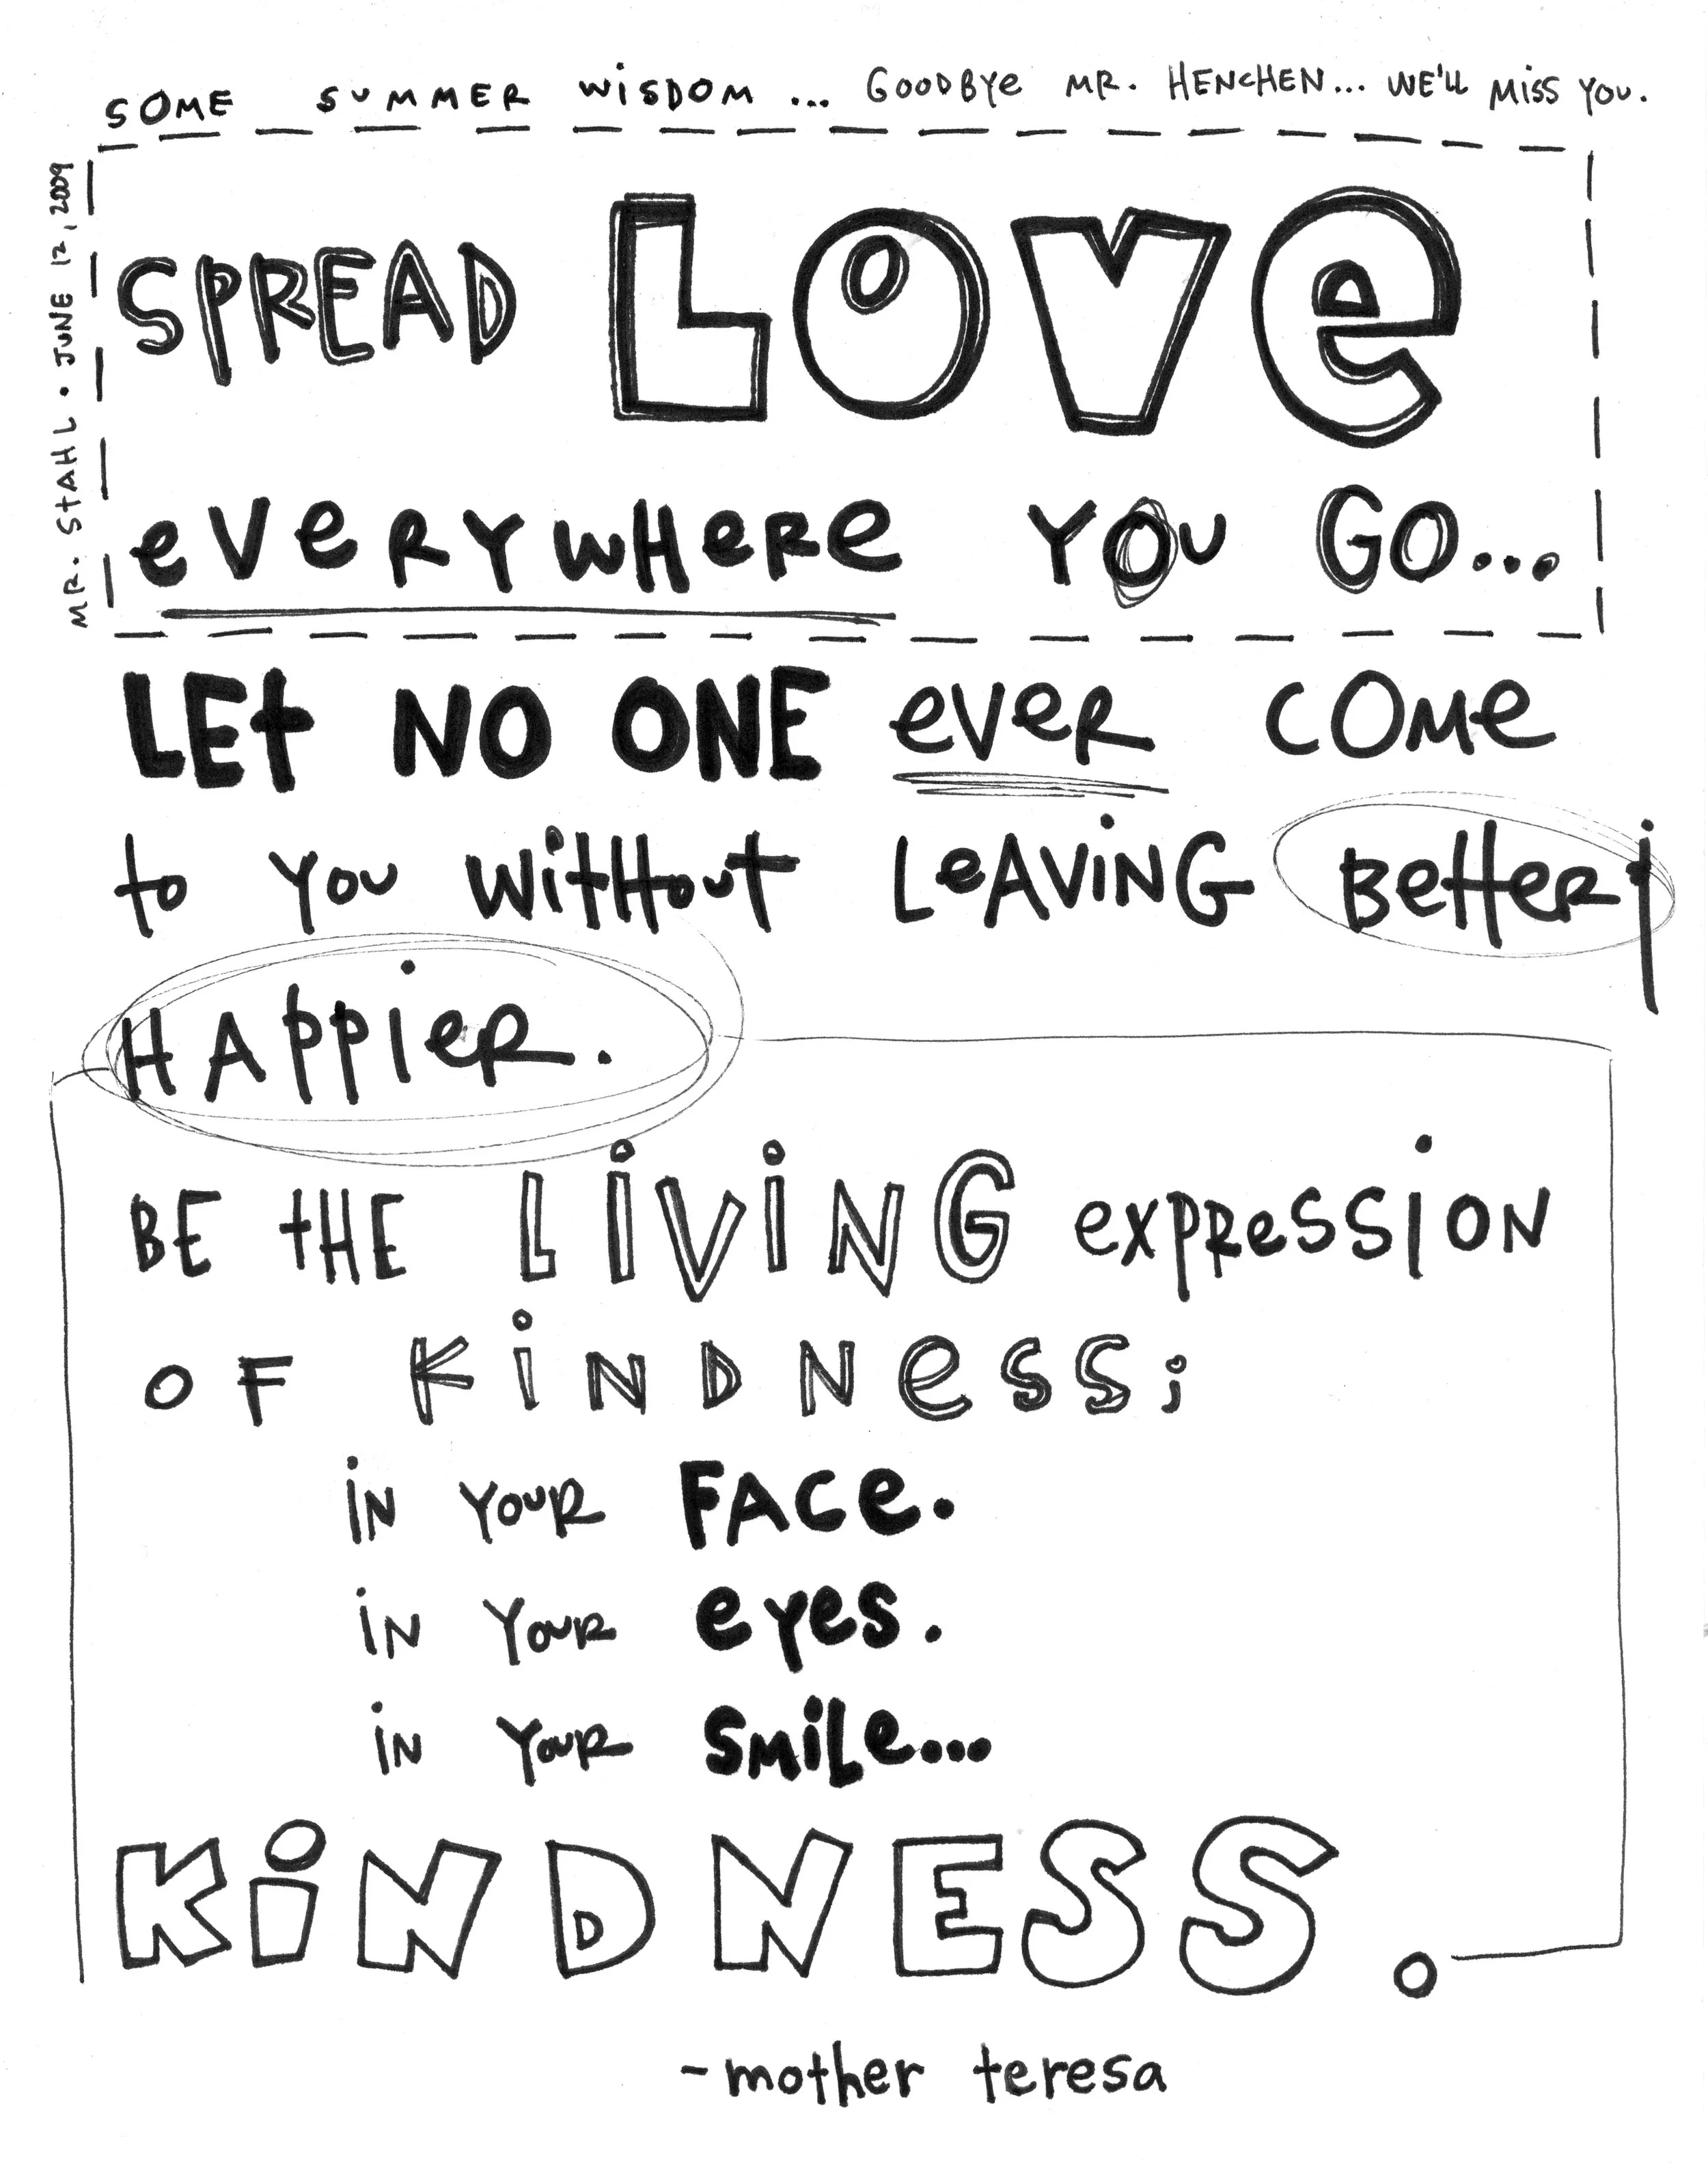 SOME SUMMER WiSDOM ... GOODBYe MR. HENcHEN... WE'LL MiSS YOU.
MR. StAHL • JUNE 12, 2009
SPREAD LOVe
eVeRYWHeRe YOU GO...
LEt NO ONE eVeR COMe
to YOU WitHout LeAVING BetteR
HAppieR.
BE tHE LiViNG expReSSiON
OF KiNDNeSS;
iN YOUR FACe.
iN YOUR eyes.
iN YOUR SMiLe...
KiNDNESS.
-mother teresa